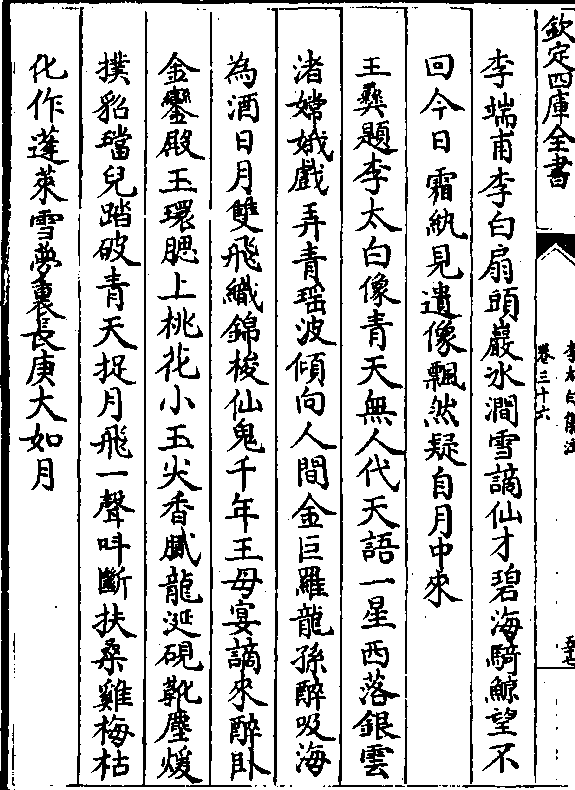 欽定四庫全書
李太白集注
卷三十六
李端甫李白扇頭巖氷澗雪謫仙才碧海騎鯨望不
回今日霜紈見遺像飄然疑自月中來
王彝題李太白像青天無人代天語一星西落銀雲
渚嫦娥戲弄青瑶波傾向人間金叵羅龍孫醉吸海
為酒日月雙飛織錦梭仙鬼千年王母宴謫來醉卧
金鑾殿玉環腮上桃花小玉火香膩龍涎硯靴塵煖
撲貂璫兒踏破青天捉月飛一聲呌斷扶桑雞梅枯
化作蓬萊雪夢裏長庚大如月